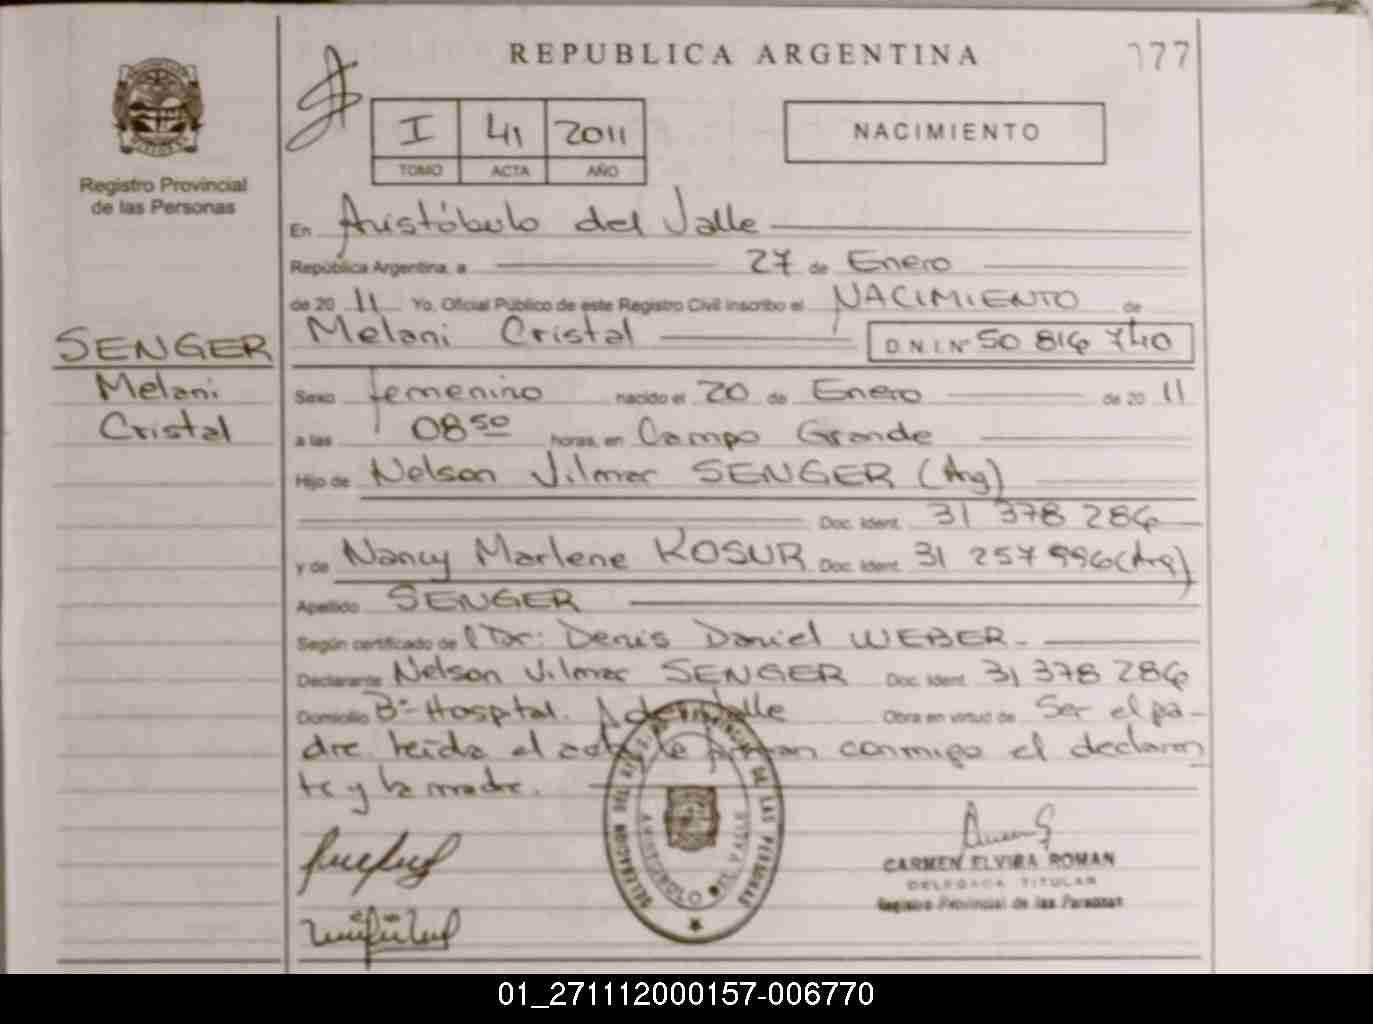 REPUBLICA ARGENTINA
177
Registro Provincial
de las Personas
I 41 2011
TOMO ACTA AÑO
NACIMIENTO
En Aristóbulo del Valle
República Argentina, a 27 de Enero
de 2011 Yo, Oficial Público de este Registro Civil inscribo el NACIMIENTO de
Melani Cristal D.N.I. Nº 50 816 740
SENGER
Melani
Cristal
Sexo femenino nacido el 20 de Enero de 2011
a las 08 50 horas, en Campo Grande
Hijo de Nelson Vilmar SENGER (Arg)
Doc. Ident. 31 378 286
y de Nancy Marlene KOSUR Doc. Ident. 31 257 996 (Arg)
Apellido SENGER
Según certificado de Dr: Denis Daniel WEBER-
Declarante Nelson Vilmar SENGER Doc. Ident. 31 378 286
Domicilio Bº Hosptal. A del Valle Obra en virtud de Ser el pa-
dre leída el acta le firman conmigo el declaran
te y la madre.
DELEGACION DEL REG. PROVINCIAL DE LAS PERSONAS
ARISTOBULO DEL VALLE
CARMEN ELVIRA ROMAN
DELEGADA TITULAR
Registro Provincial de las Personas
01_271112000157-006770